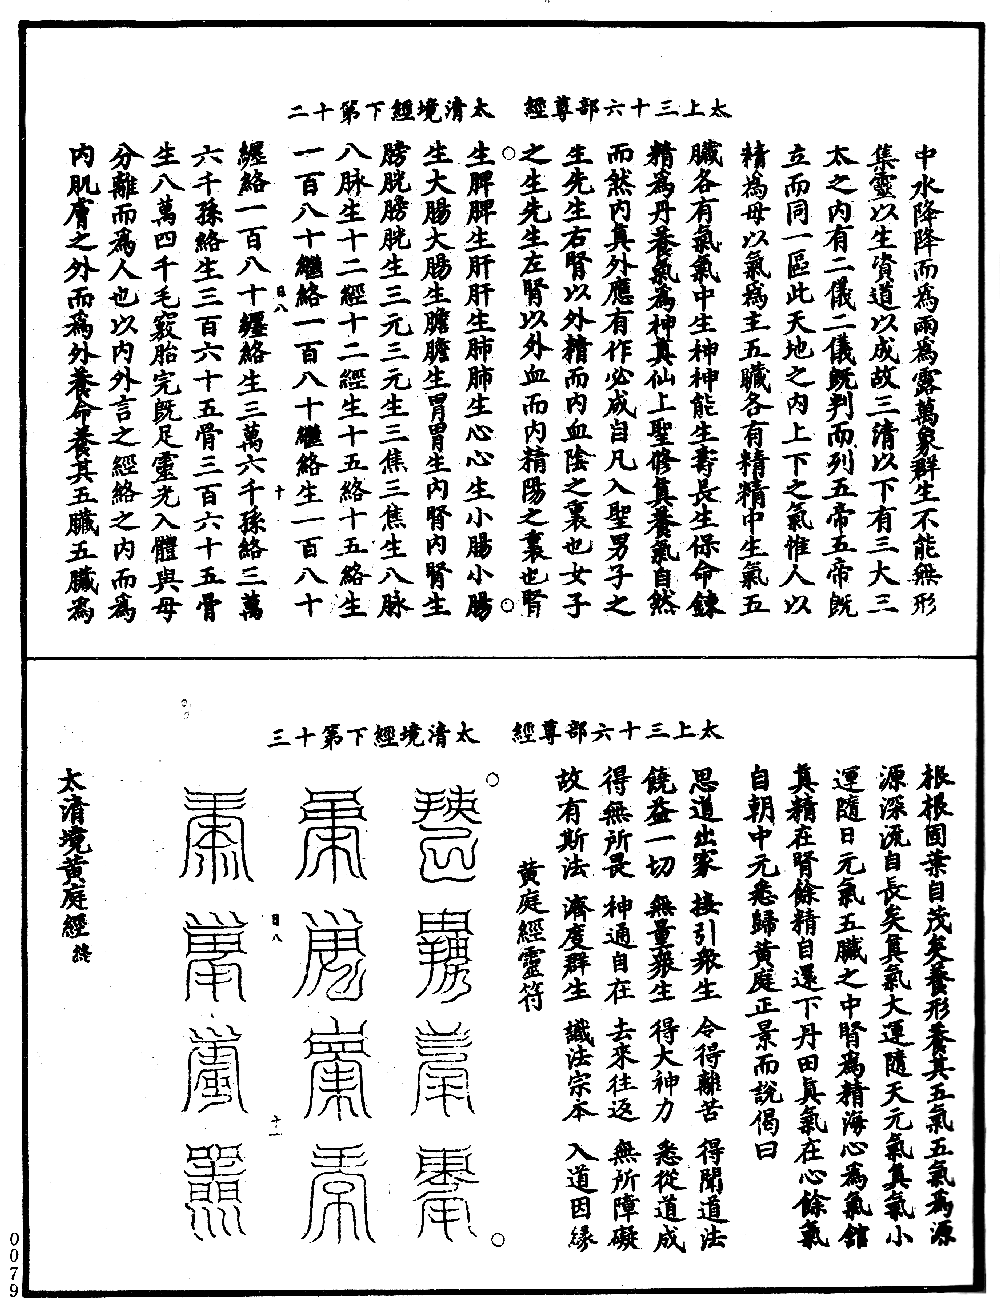 太上三十六部尊經　太清境經下第十二
中水降降而為雨為露萬象群生不能無形
集靈以生資道以成故三清以下有三大三
太之内有二儀二儀既判而列五帝五帝既
立而同一區此天地之内上下之氣惟人以
精為母以氣為主五臟各有精精中生氣五
臟各有氣氣中生神神能生壽長生保命鍊
精為丹養氣為神真仙上聖修真養氣自然
而然内真外應有作必成自凡入聖男子之
生先生右腎以外精而内血陰之裏也女子
之生先生左腎以外血而内精陽之裏也腎
生脾脾生肝肝生肺肺生心心生小腸小腸
生大腸大腸生膽膽生胃胃生内腎内腎生
膀胱膀胱生三元三元生三焦三焦生八脉
八脉生十二經十二經生十五絡十五絡生
一百八十繼絡一百八十繼絡生一百八十
目八　十
纒絡一百八十纒絡生三萬六千孫絡三萬
六千孫絡生三百六十五骨三百六十五骨
生八萬四千毛竅胎完既足靈光入體與母
分離而為人也以内外言之經絡之内而為
内肌膚之外而為外養命養其五臟五臟為
太上三十六部尊經　太清境經下第十三
根根固葉自茂矣養形養其五氣五氣為源
源深流自長矣真氣大運隨天元氣真氣小
運隨日元氣五臟之中腎為精海心為氣館
真精在腎餘精自還下丹田真氣在心餘氣
自朝中元悉歸黃庭正景而說偈曰
思道出家　接引衆生　令得離苦　得聞道法
饒益一切　無量衆生　得大神力　悉從道成
得無所畏　神通自在　去來往返　無所障礙
故有斯法　濟度群生　識法宗本　入道因緣
黃庭經靈符
目八　十一
太清境黃庭經終
0079